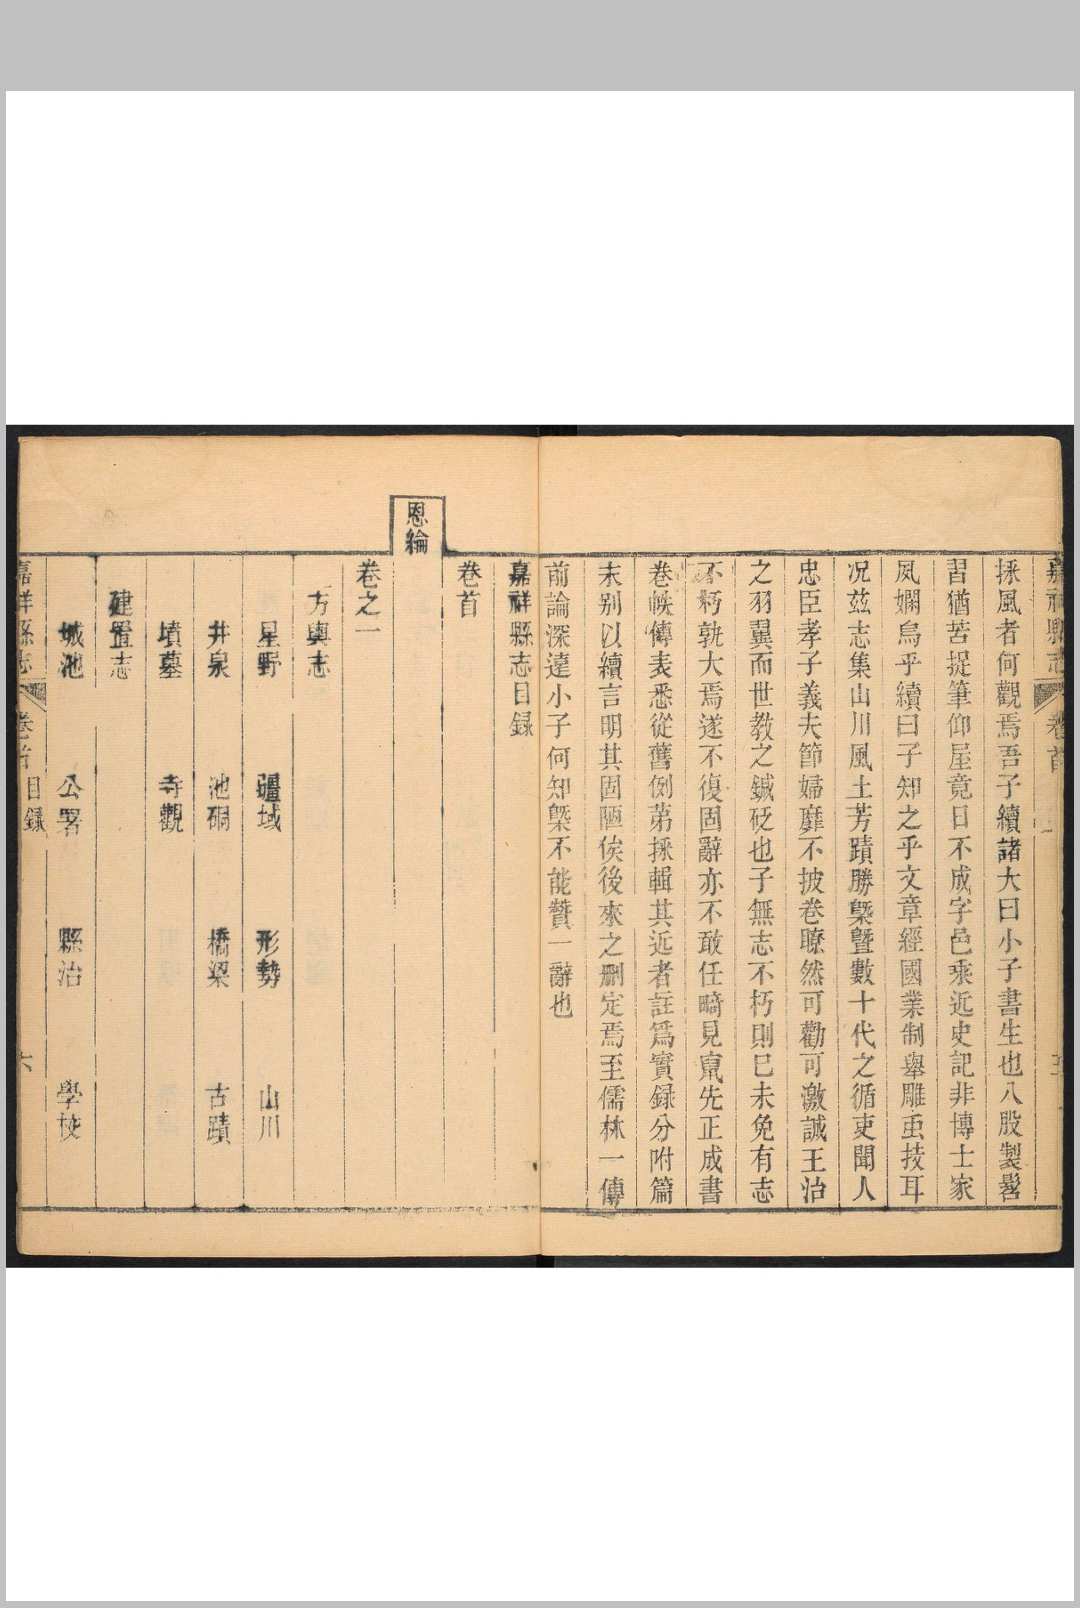 嘉祥縣志 卷首
採風者何觀焉吾子續諸大曰小子書生也八股製髫
習猶苦提筆仰屋竟日不成字邑乘近史記非博士家
夙嫻烏乎續曰子知之乎文章經國業制舉雕虫技耳
况茲志集山川風土芳蹟勝槩暨數十代之循吏聞人
忠臣孝子義夫節婦靡不披卷瞭然可勸可激誠王治
之羽翼而世教之鍼砭也子無志不朽則已未免有志
不朽孰大焉遂不復固辭亦不敢任畸見稟先正成書
卷帙傳表悉從舊例第採輯其近者註爲實録分附篇
末别以續言明其固陋俟後來之刪定焉至儒林一傳
前論深達小子何知槩不能贊一辭也
嘉祥縣志目録
卷首
恩綸
卷之一
方輿志
星野 疆域 形勢 山川
井泉 池硐 橋梁 古蹟
墳墓 寺觀
建置志
城池 公署 縣治 學校
嘉祥縣志 卷首 目録 六